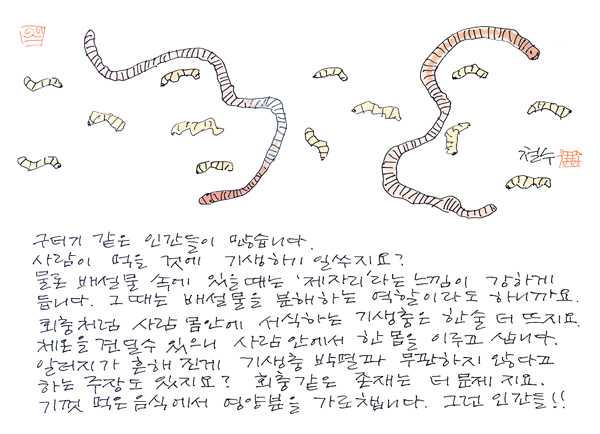 철수
구더기 같은 인간들이 많습니다.
사람이 먹을 것에 기생하기 일쑤지요?
물론 배설물 속에 있을때는 '제자리'라는 느낌이 강하게
듭니다. 그 때는 배설물을 분해하는 역할이라도 하니까요.
회충처럼 사람 몸안에 서식하는 기생충은 한술 더 뜨지요.
체온을 견딜수 있으니 사람 안에서 한 몸을 이루고 삽니다.
알러지가 흔해 진게 기생충 박멸과 무관하지 않다고
하는 주장도 있지요? 회충같은 존재는 더 문제 지요.
기껏 먹은 음식에서 영양분을 가로챕니다. 그런 인간들!!